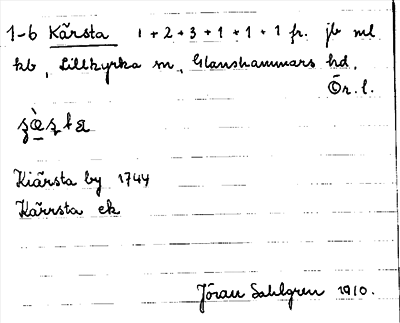 1-6 Kärsta 1 + 2 + 3 + 1 + 1 + 1 fr. jb ml
kb, Lillkyrka sn, Glanshammars hd,
Ör. l.
Kiärsta by 1744
Kärrsta ek
Jöran Sahlgren 1910.